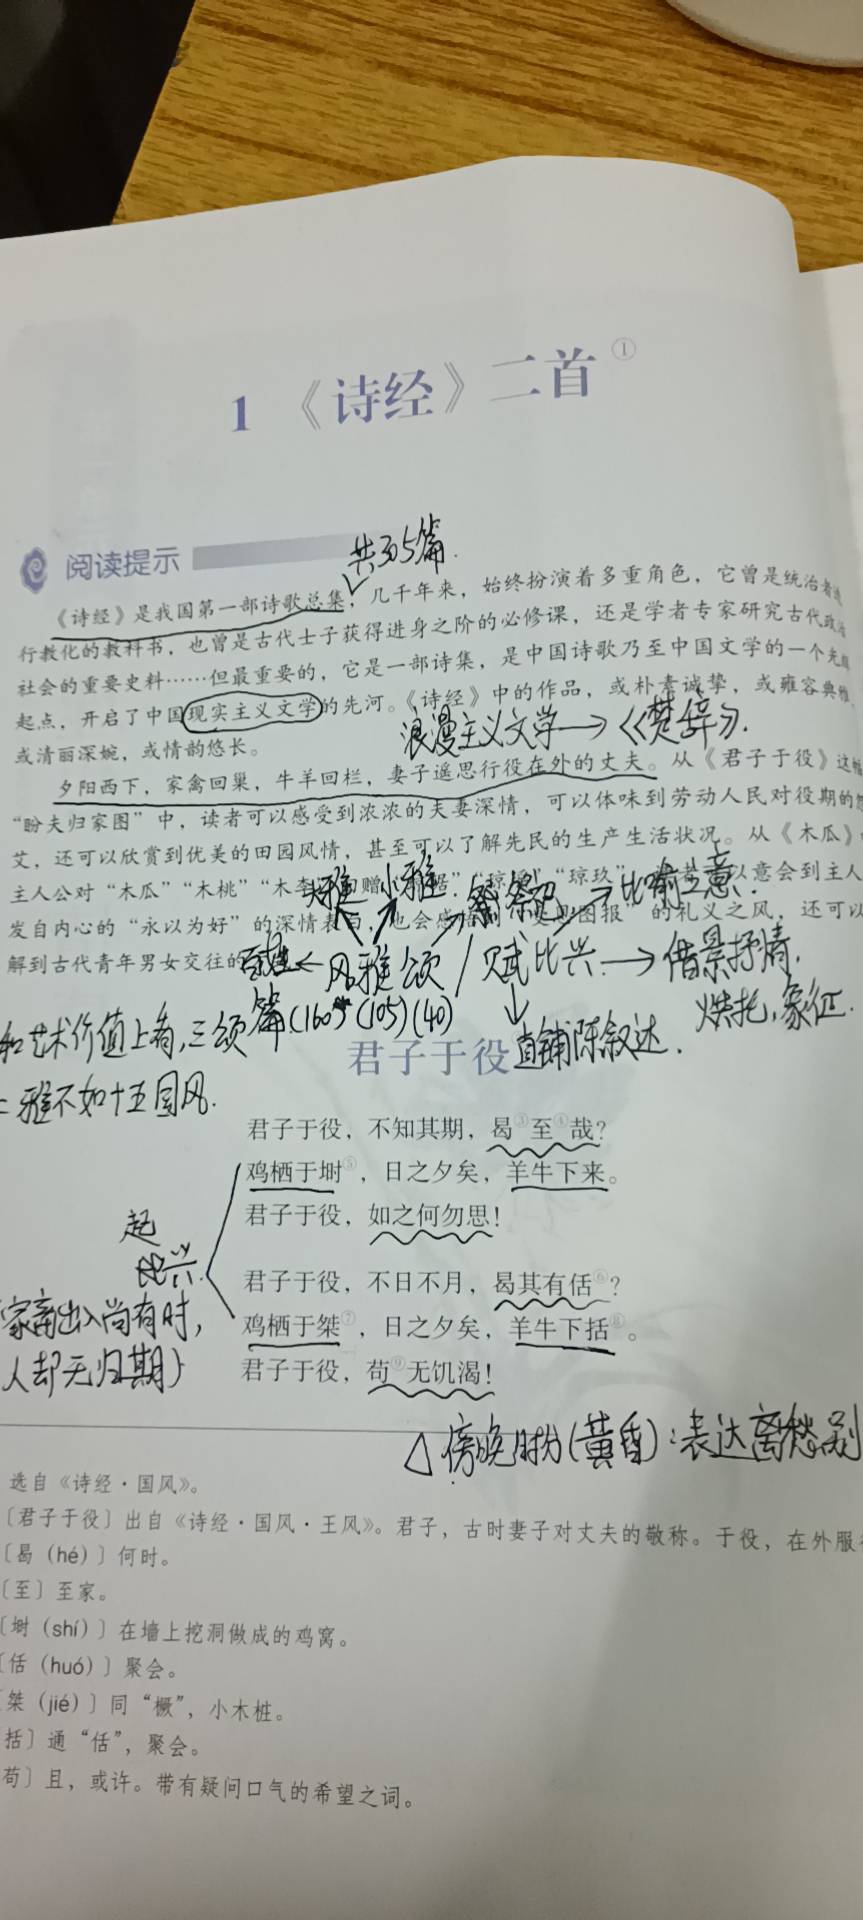 1 《诗经》二首①
阅读提示
共305篇.
《诗经》是我国第一部诗歌总集，几千年来，始终扮演着多重角色，它曾是统治者进
行教化的教科书，也曾是古代士子获得进身之阶的必修课，还是学者专家研究古代政治
社会的重要史料……但最重要的，它是一部诗集，是中国诗歌乃至中国文学的一个光辉
起点，开启了中国现实主义文学的先河。《诗经》中的作品，或朴素诚挚，或雍容典雅，
浪漫主义文学→《楚辞》.
或清丽深婉，或情韵悠长。
夕阳西下，家禽回巢，牛羊回栏，妻子遥思行役在外的丈夫。从《君子于役》这幅
“盼夫归家图”中，读者可以感受到浓浓的夫妻深情，可以体味到劳动人民对役期的怨
艾，还可以欣赏到优美的田园风情，甚至可以了解先民的生产生活状况。从《木瓜》
主人公对“木瓜”“木桃”“木李”回赠“琼琚”“琼玖” 以意会到主人
大雅 小雅 祭祀 →比喻之意.
发自内心的“永以为好”的深情表白，也会感 图报”的礼义之风，还可以
解到古代青年男女交往的
←风雅颂/赋比兴.→借景抒情,
烘托,象征.
篇(160)(105)(40)
直铺陈叙达.
和艺术价值上看,三颂
二雅不如十五国风.
君子于役
君子于役，不知其期，曷③至④哉？
鸡栖于埘⑤，日之夕矣，羊牛下来。
君子于役，如之何勿思！
起
比兴.
君子于役，不日不月，曷其有佸⑥？
(家畜出入尚有时,
鸡栖于桀⑦，日之夕矣，羊牛下括⑧。
人却无归期)
君子于役，苟⑨无饥渴！
△傍晚时分(黄昏):表达离愁别
选自《诗经·国风》。
〔君子于役〕出自《诗经·国风·王风》。君子，古时妻子对丈夫的敬称。于役，在外服
〔曷（hé）〕何时。
〔至〕至家。
〔埘（shí）〕在墙上挖洞做成的鸡窝。
〔佸（huó）〕聚会。
桀（jié）〕同“橛”，小木桩。
括〕通“佸”，聚会。
苟〕且，或许。带有疑问口气的希望之词。